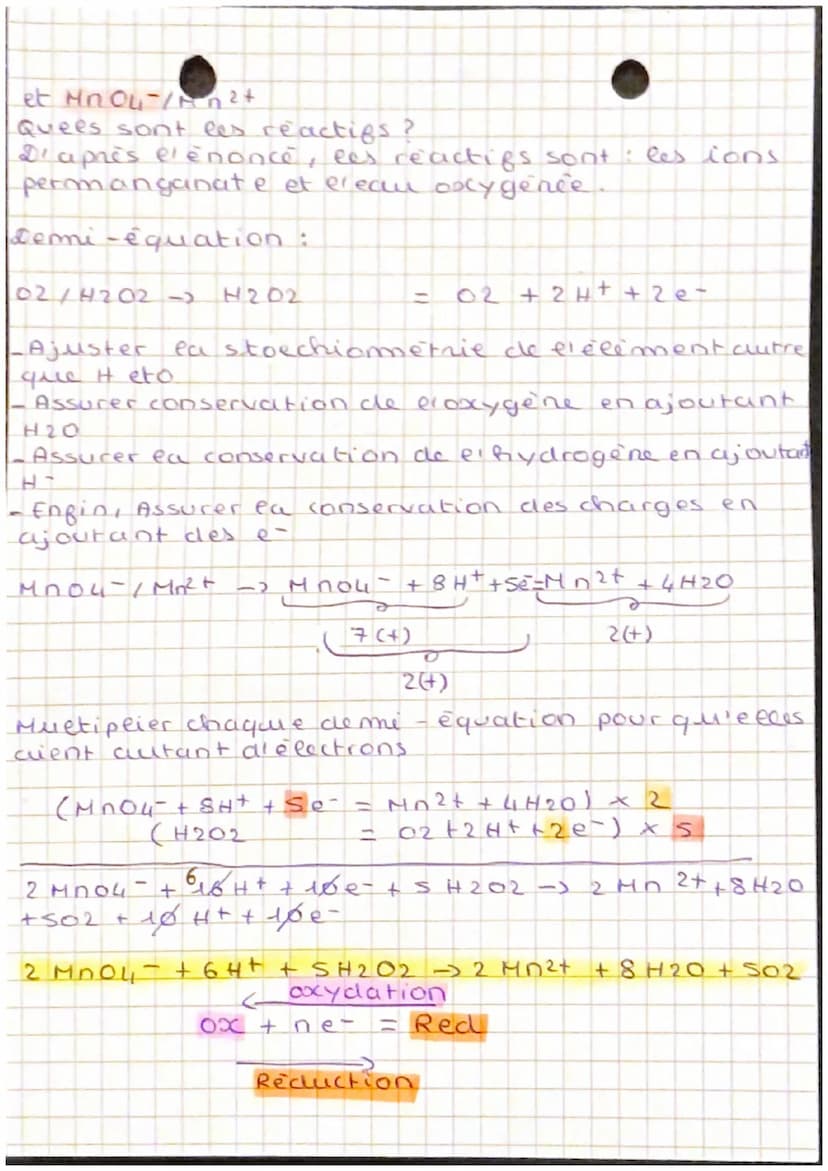 et MnO4-/Mn2+
Quels sont les réactifs ?
D'après l'énoncé, les réactifs sont : les ions
permanganate et l'eau oxygénée.
Demi-équation :
O2/H2O2 -> H2O2 = O2 + 2H+ + 2e-
- Ajuster la stoechiométrie de l'élément autre
que H et O
- Assurer conservation de l'oxygène en ajoutant
H2O
- Assurer la conservation de l'hydrogène en ajoutant
H-
- Enfin, Assurer la conservation des charges en
ajoutant des e-
MnO4-/Mn2+ -> MnO4- + 8H+ + 5e- = Mn2+ + 4H2O
7(+) 2(+)
2(+)
Multiplier chaque demi-équation pour qu'elles
aient autant d'électrons
(MnO4- + 8H+ + 5e- = Mn2+ + 4H2O) x 2
(H2O2 = O2 + 2H+ + 2e-) x 5
2 MnO4- + 6 16H+ + 10e- + 5 H2O2 -> 2 Mn2+ + 8H2O
+ 5O2 + 10 H+ + 10e-
2 MnO4- + 6H+ + 5H2O2 -> 2 Mn2+ + 8H2O + 5O2
oxydation
Ox + ne- = Red
Réduction